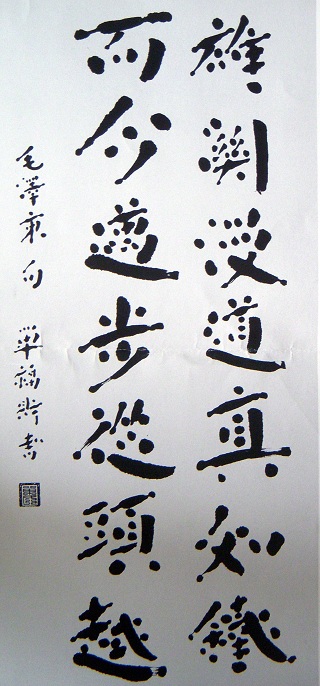 雄關漫道真如鐵
而今邁步從頭越
毛澤東句 單福書